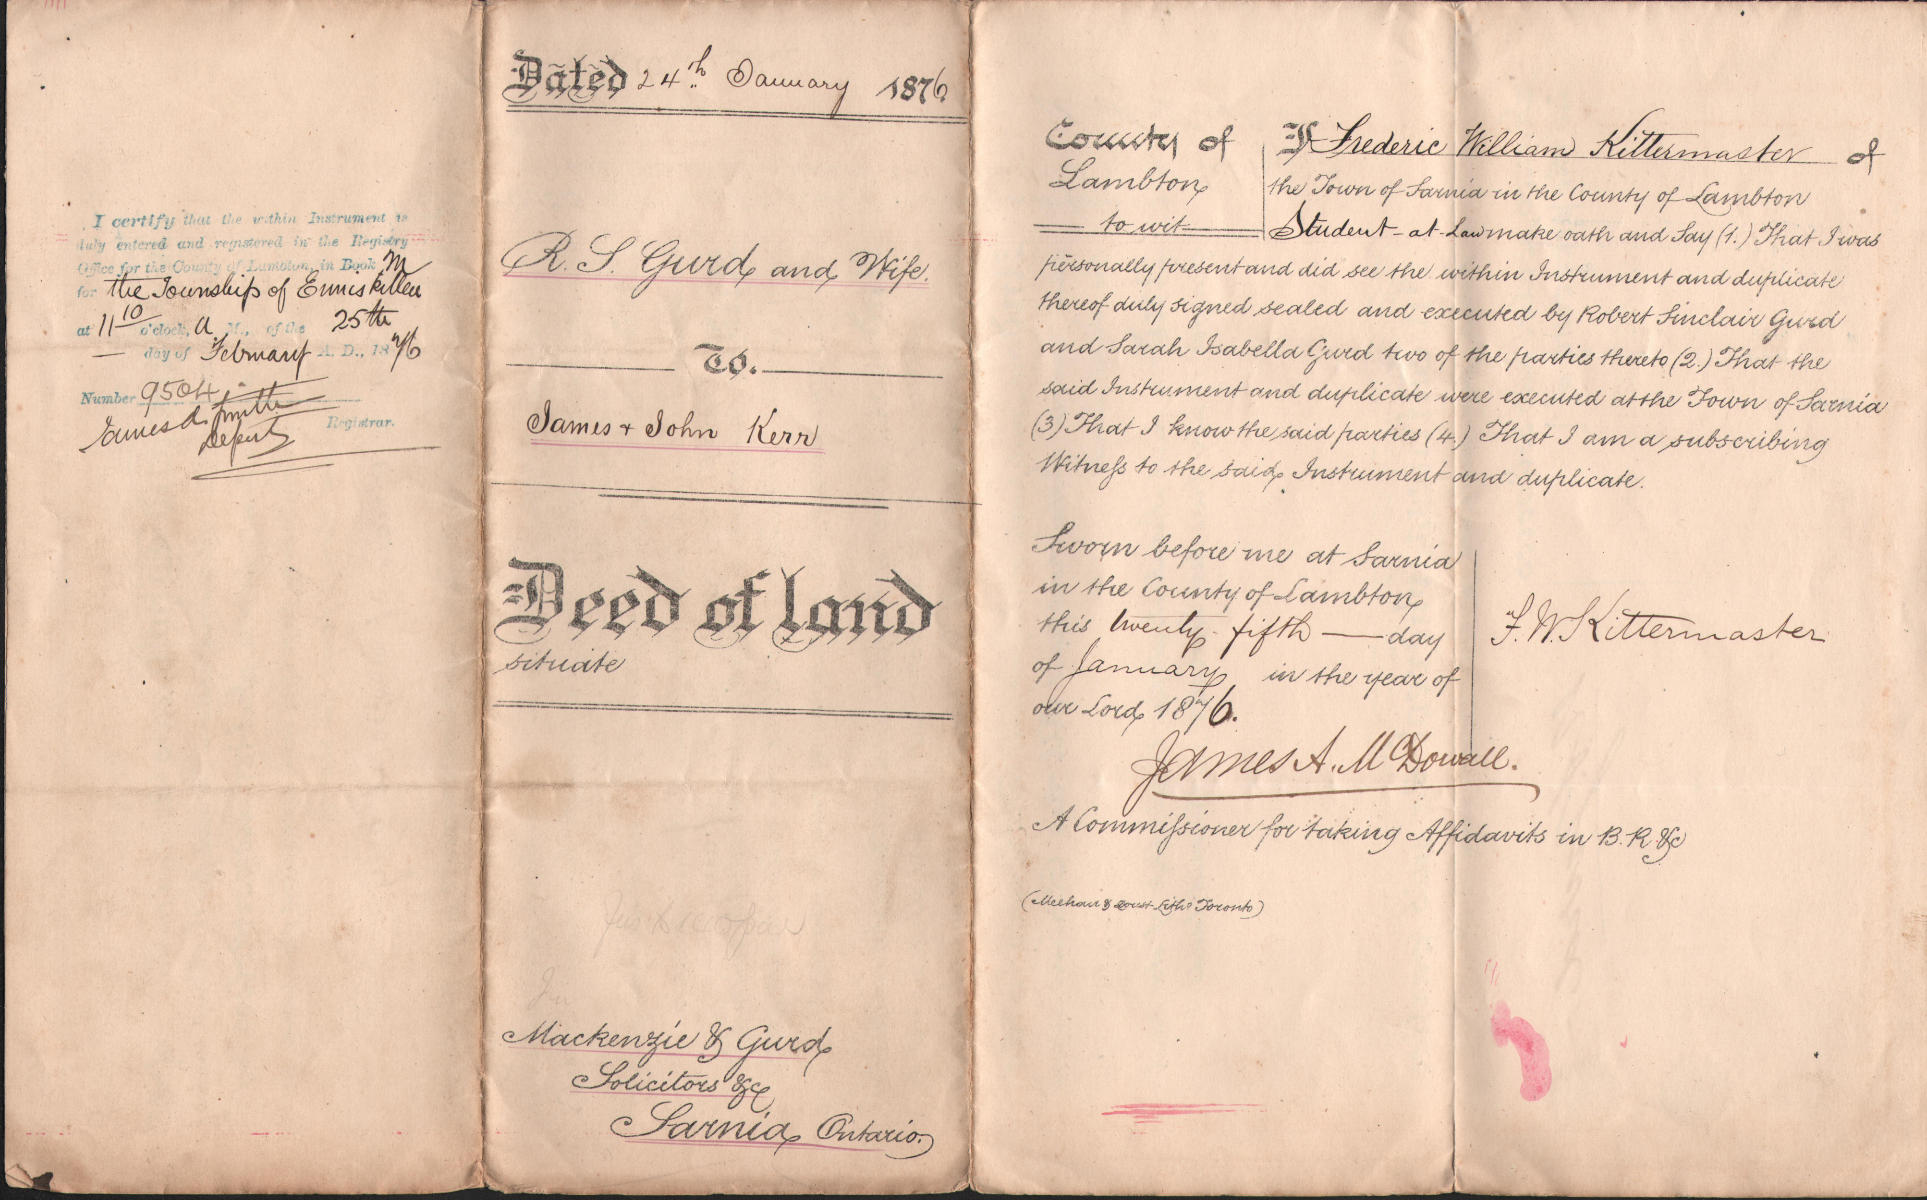 I certify that the within Instrument is
duly entered and registered in the Registry
Office for the County of Lambton, in Book M
for the Township of Enniskillen
at 11 10 o'clock, A M., of the 25th
— day of February A. D., 1876
Number 9504
James A. Smith
Deputy Registrar.
Dated 24th January 1876
R. S. Gurd and Wife.
To.
James & John Kerr
Deed of land
situate
Mackenzie & Gurd
Solicitors &c
Sarnia Ontario.
County of
Lambton
to wit
I Frederic William Kittermaster of
the Town of Sarnia in the County of Lambton
Student-at-Law make oath and Say (1.) That I was
personally present and did see the within Instrument and duplicate
thereof duly signed sealed and executed by Robert Sinclair Gurd
and Sarah Isabella Gurd two of the parties thereto (2.) That the
said Instrument and duplicate were executed at the Town of Sarnia
(3) That I know the said parties (4.) That I am a subscribing
Witness to the said Instrument and duplicate.
Sworn before me at Sarnia
in the County of Lambton
this twenty-fifth — day
of January in the year of
our Lord 1876.
F. W. Kittermaster
James A. McDowall.
A Commissioner for taking Affidavits in B. R. &c
Lith. Toronto)